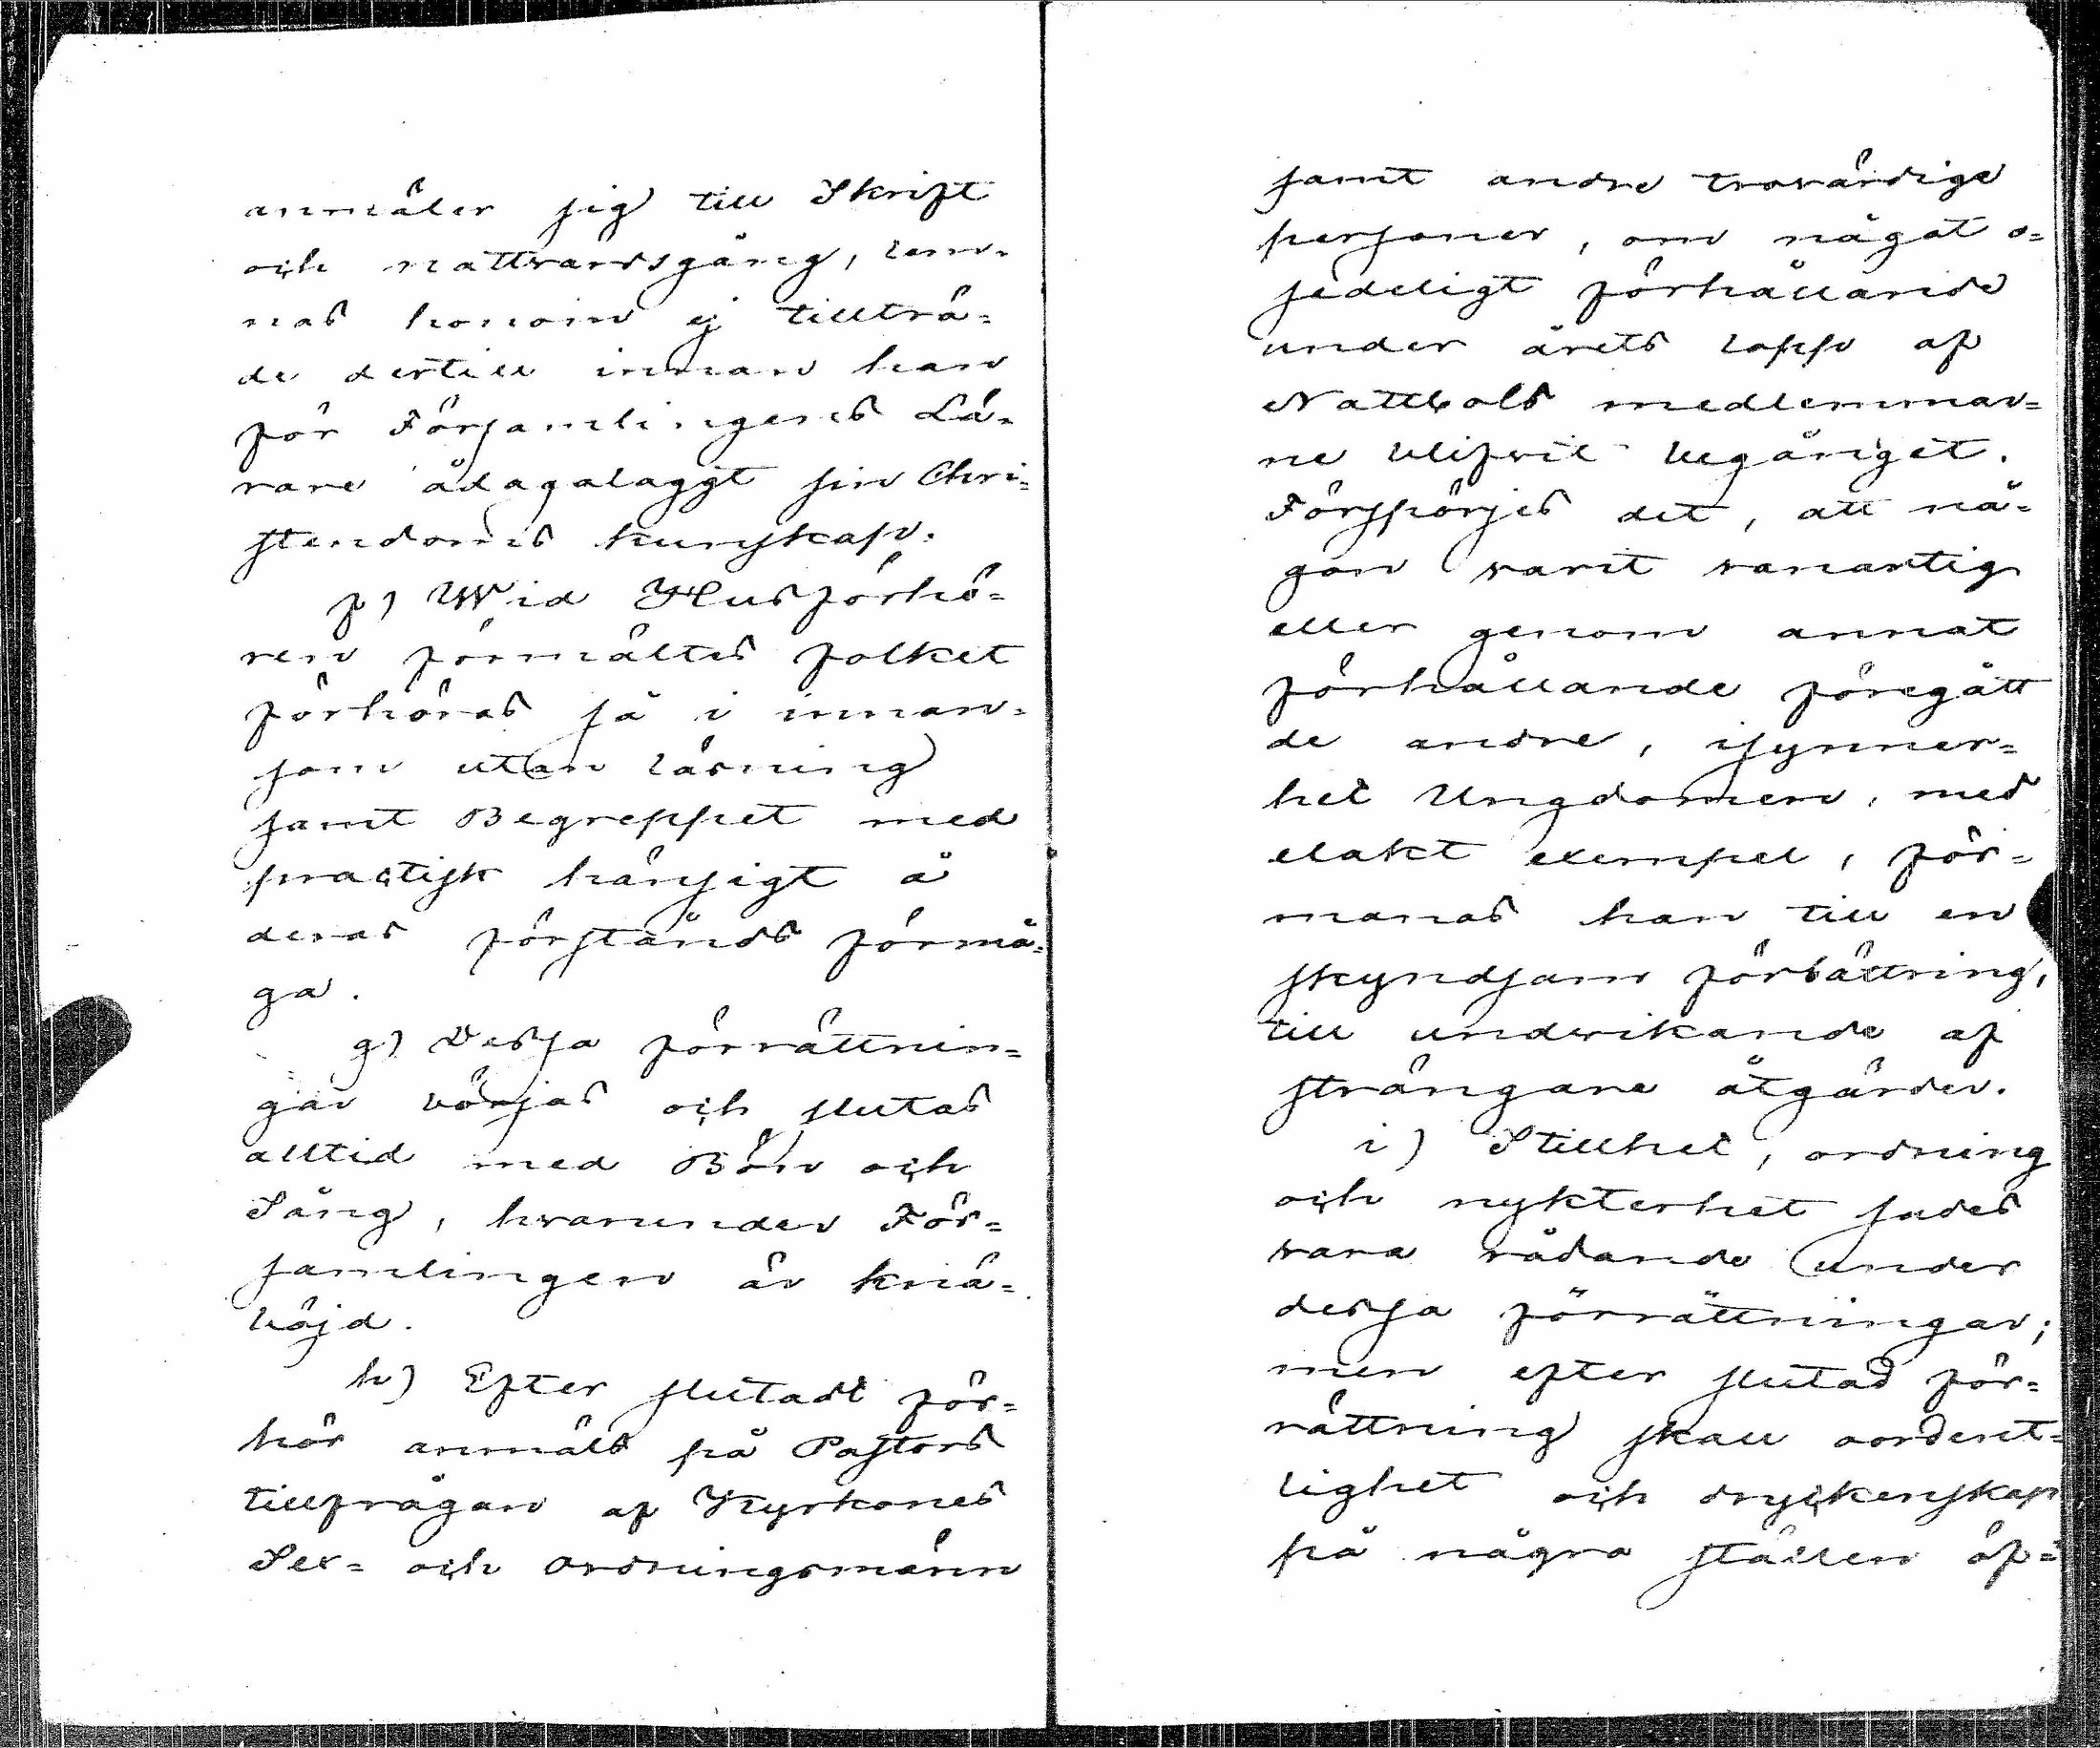 anmäler sig till Skrift
och nattvardsgång, lem-
nas honom ej tillträ-
de dertill innan han
för Församlingens Lä-
rare ådagalaggt sin Chri-
stendoms kunskap.
f) Wid Husförhö-
ren förmältes folket
förhöras så i innan-
som utan läsning
samt Begreppet med
practisk hänsigt å
deras förstånds förmå-
ga.
g) Dessa förrättnin-
gar börjas och slutas
alltid med Bön och
Sång, hvarunder För-
samlingen är knä-
böjd.
h) Efter slutadt för-
hör anmäls på Pastors
tillfrågan af Kyrkones
Sex- och ordningsmänn
samt andre trovärdige
personer, om något o-
sedeligt förhållande
under årets lopp af
Nattbols medlemmar-
ne blifvit begånget.
Försspörjes det, att nå-
gon varit vanartig
eller genom annat
förhållande föregått
de andre, isynner-
het Ungdomen, med
elakt exempel, för-
manas han till en
skyndsam förbättring,
till undvikande af
strängare åtgärder.
i) Stillhet, ordning
och nykterhet sades
vara rådande under
dessa förrättningar;
men efter slutad för-
rättning skall oordent-
lighet och dryckenskap
på några ställen öf-